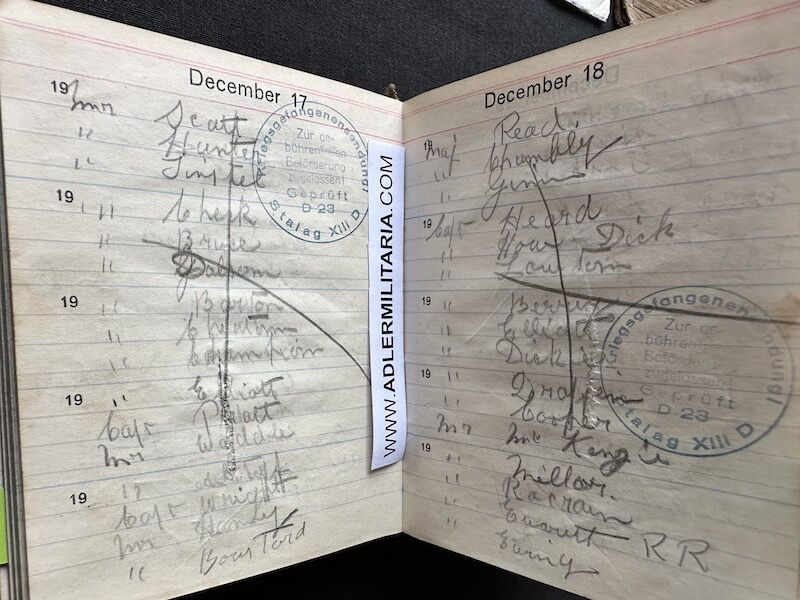 December 17
19
Mr Scatt
" Hunter
"
19
" Cheek
" Bruce
"
19
" Barton
" Cheatom
" Champion
19
" Elliott
Capt Platt
Mr Waddle
"
19
Capt Wright
Mr Handy
" Boustard
Kriegsgefangenensendung!
Zur ge-
bührenfreien
Beförderung
zugelassen!
Geprüft
D 23
Stalag XIII D
WWW.ADLERMILITARIA.COM
December 18
Read.
19
Maj Chumbly
"
19
Capt Heard
" Hour - Dick
" Lawton
19
" Berry
" Elliott
" Dick
19
" Drapkin
" Cooker
Mr McKenzie
19
" Millar.
"
" Everett RR
" Ewing
Kriegsgefangenensendung!
Zur ge-
bührenfreien
Beförderung
zugelassen!
Geprüft
D 23
Stalag XIII D